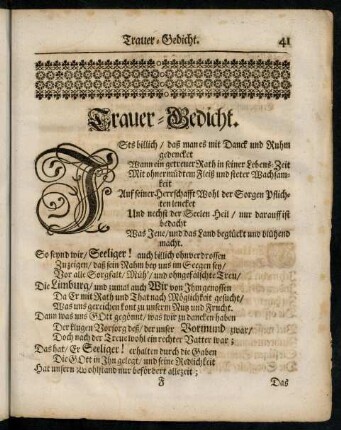 Trauer-Gedicht. 41
Trauer-Gedicht.
Ists billich / daß man es mit Danck und Ruhm
gedencket
Wann ein getreuer Rath in seiner Lebens-Zeit
Mit ohnermüdtem Fleiß und steter Wachsam-
keit
Auf seiner Herrschafft Wohl der Sorgen Pflich-
ten lencket
Und nechst der Seelen Heil / nur darauff ist
bedacht
Was Jene / und das Land beglückt und blühend
macht.
So seynd wir / Seeliger! auch billich ohnverdrossen
Zuzeigen / daß sein Nahm bey uns im Seegen sey /
Vor alle Sorgfalt / Müh / und ohngefälschte Treu /
Die Limburg / und zumal auch Wir von Ihm genossen
Da Er mit Rath und That nach Möglichkeit gesucht /
Was uns gereichen kont zu unserm Nutz und Frucht.
Dann was uns GOtt gegönnt / was wir zu dancken haben
Der klugen Vorsorg deß / der unser Vormund zwar /
Doch nach der Treue wohl ein rechter Vatter war ;
Das hat / Er Seeliger! erhalten durch die Gaben
Die GOtt in Ihn gelegt / und seine Redlichkeit
Hat unsern Wohlstand nur befördert allezeit ;
F Das